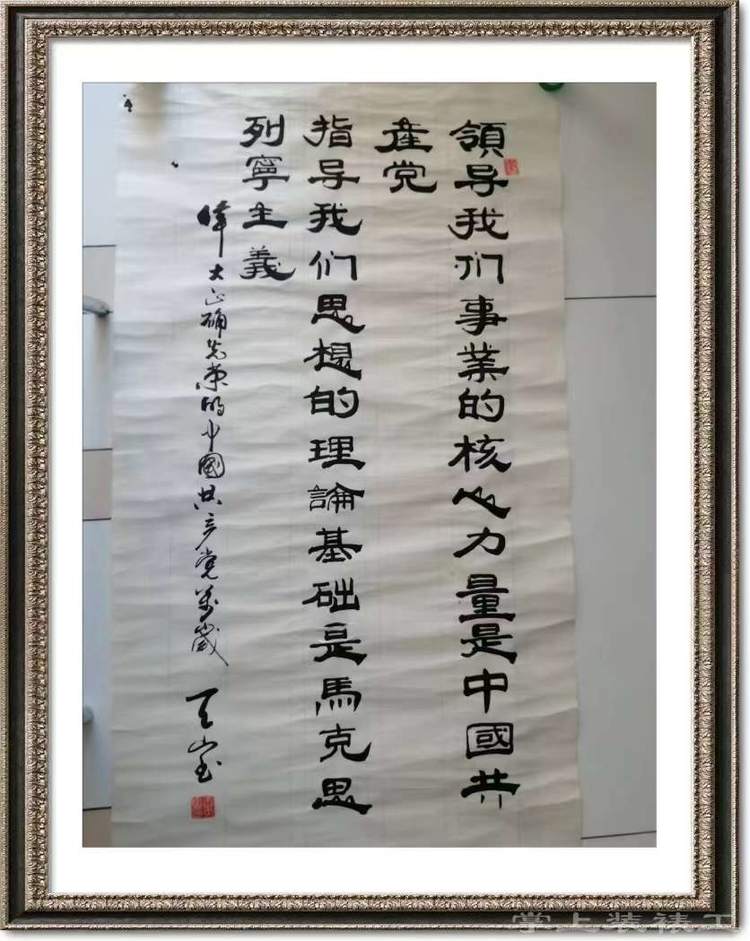 領导我们事業的核心力量是中國共
産党
指导我们思想的理論基础是馬克思
列寧主義
偉大正确光荣的中國共产党萬歲
掌上装裱工